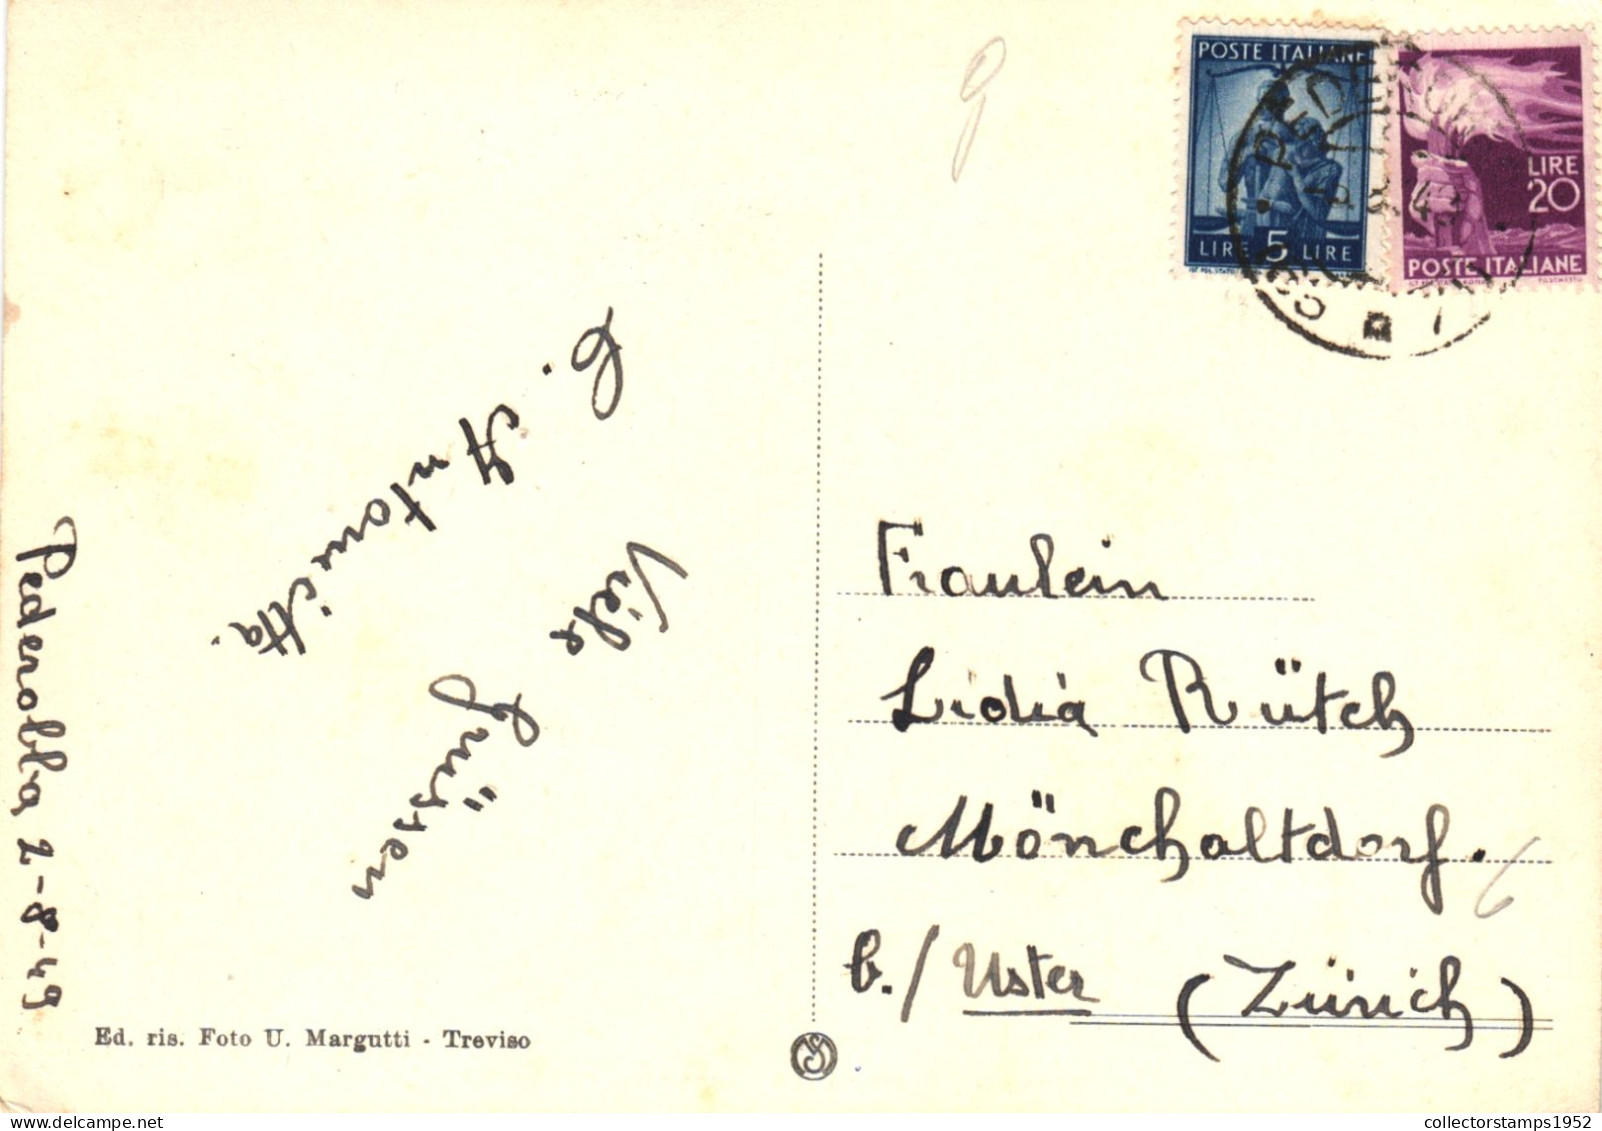 POSTE ITALIANE
LIRE 5 LIRE
LIRE
20
POSTE ITALIANE
9
C. Antonietta.
Viele
Grüssen
Pederobba 2-8-49
Fraulein
Lidia Rütch
Mönchaltdorf.
b./ Uster (Zürich)
6
Ed. ris. Foto U. Margutti - Treviso
collectorstamps1952